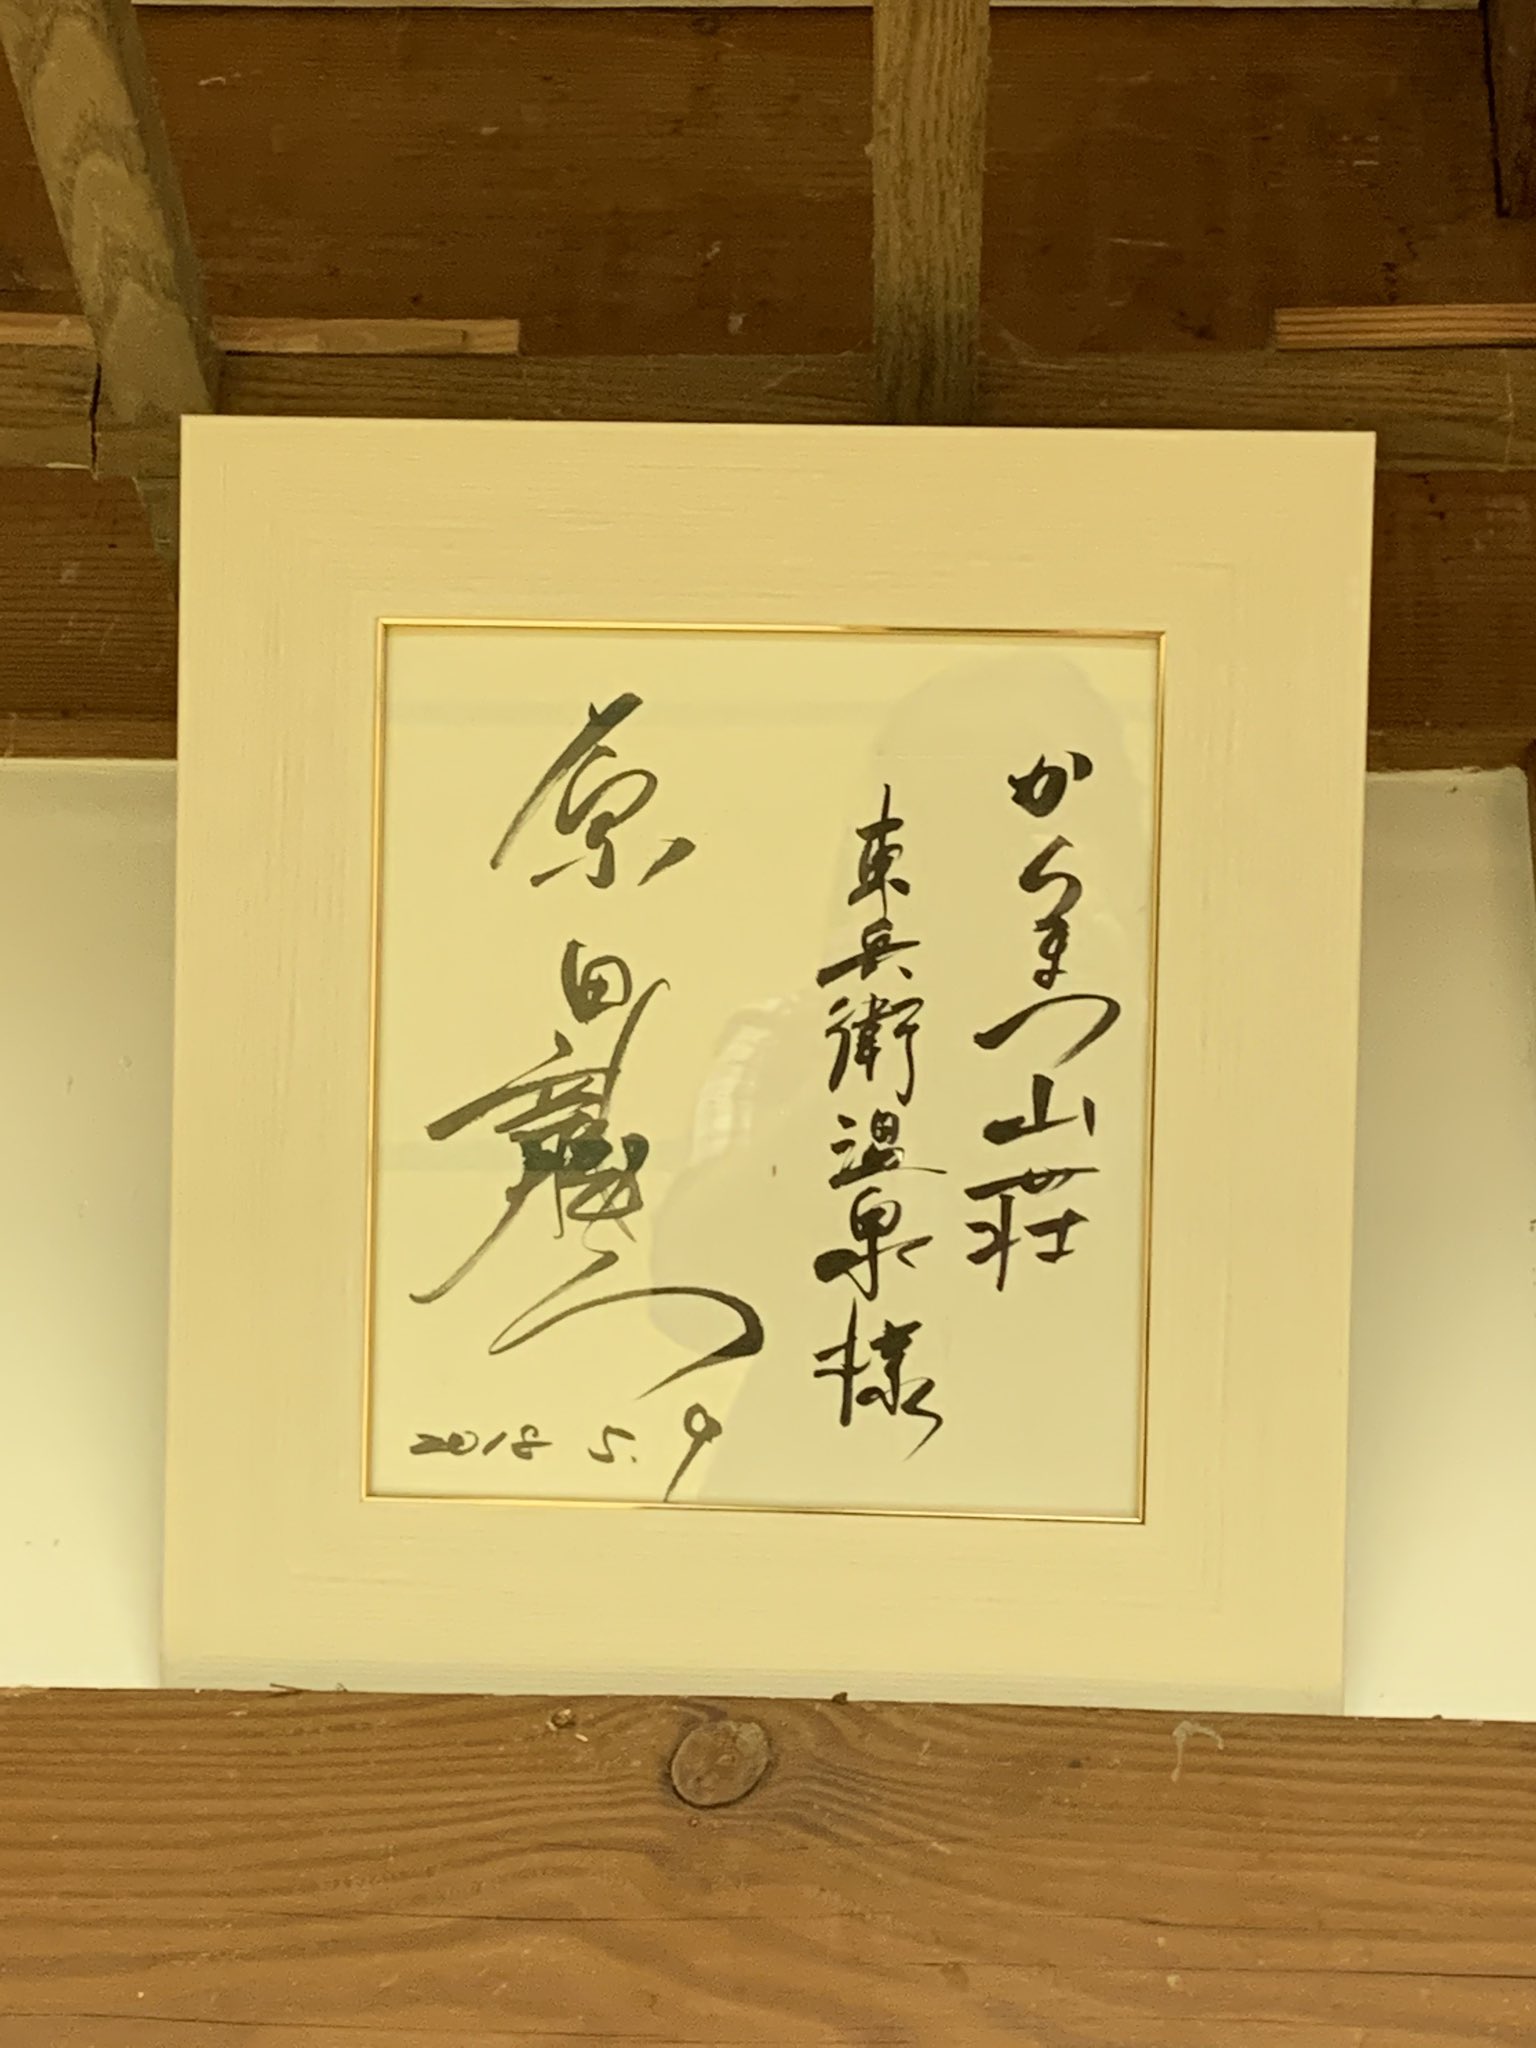 からまつ山荘
東兵衛温泉様
原田龍二
2018 5.9